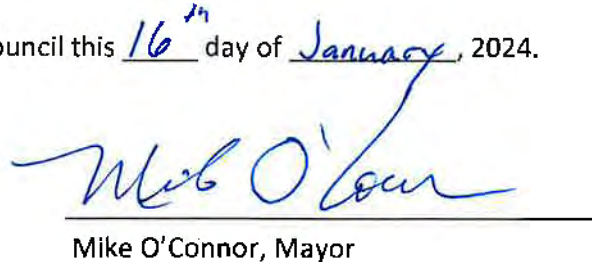 ouncil this 16th day of January, 2024.
Mike O'Connor
Mike O'Connor, Mayor